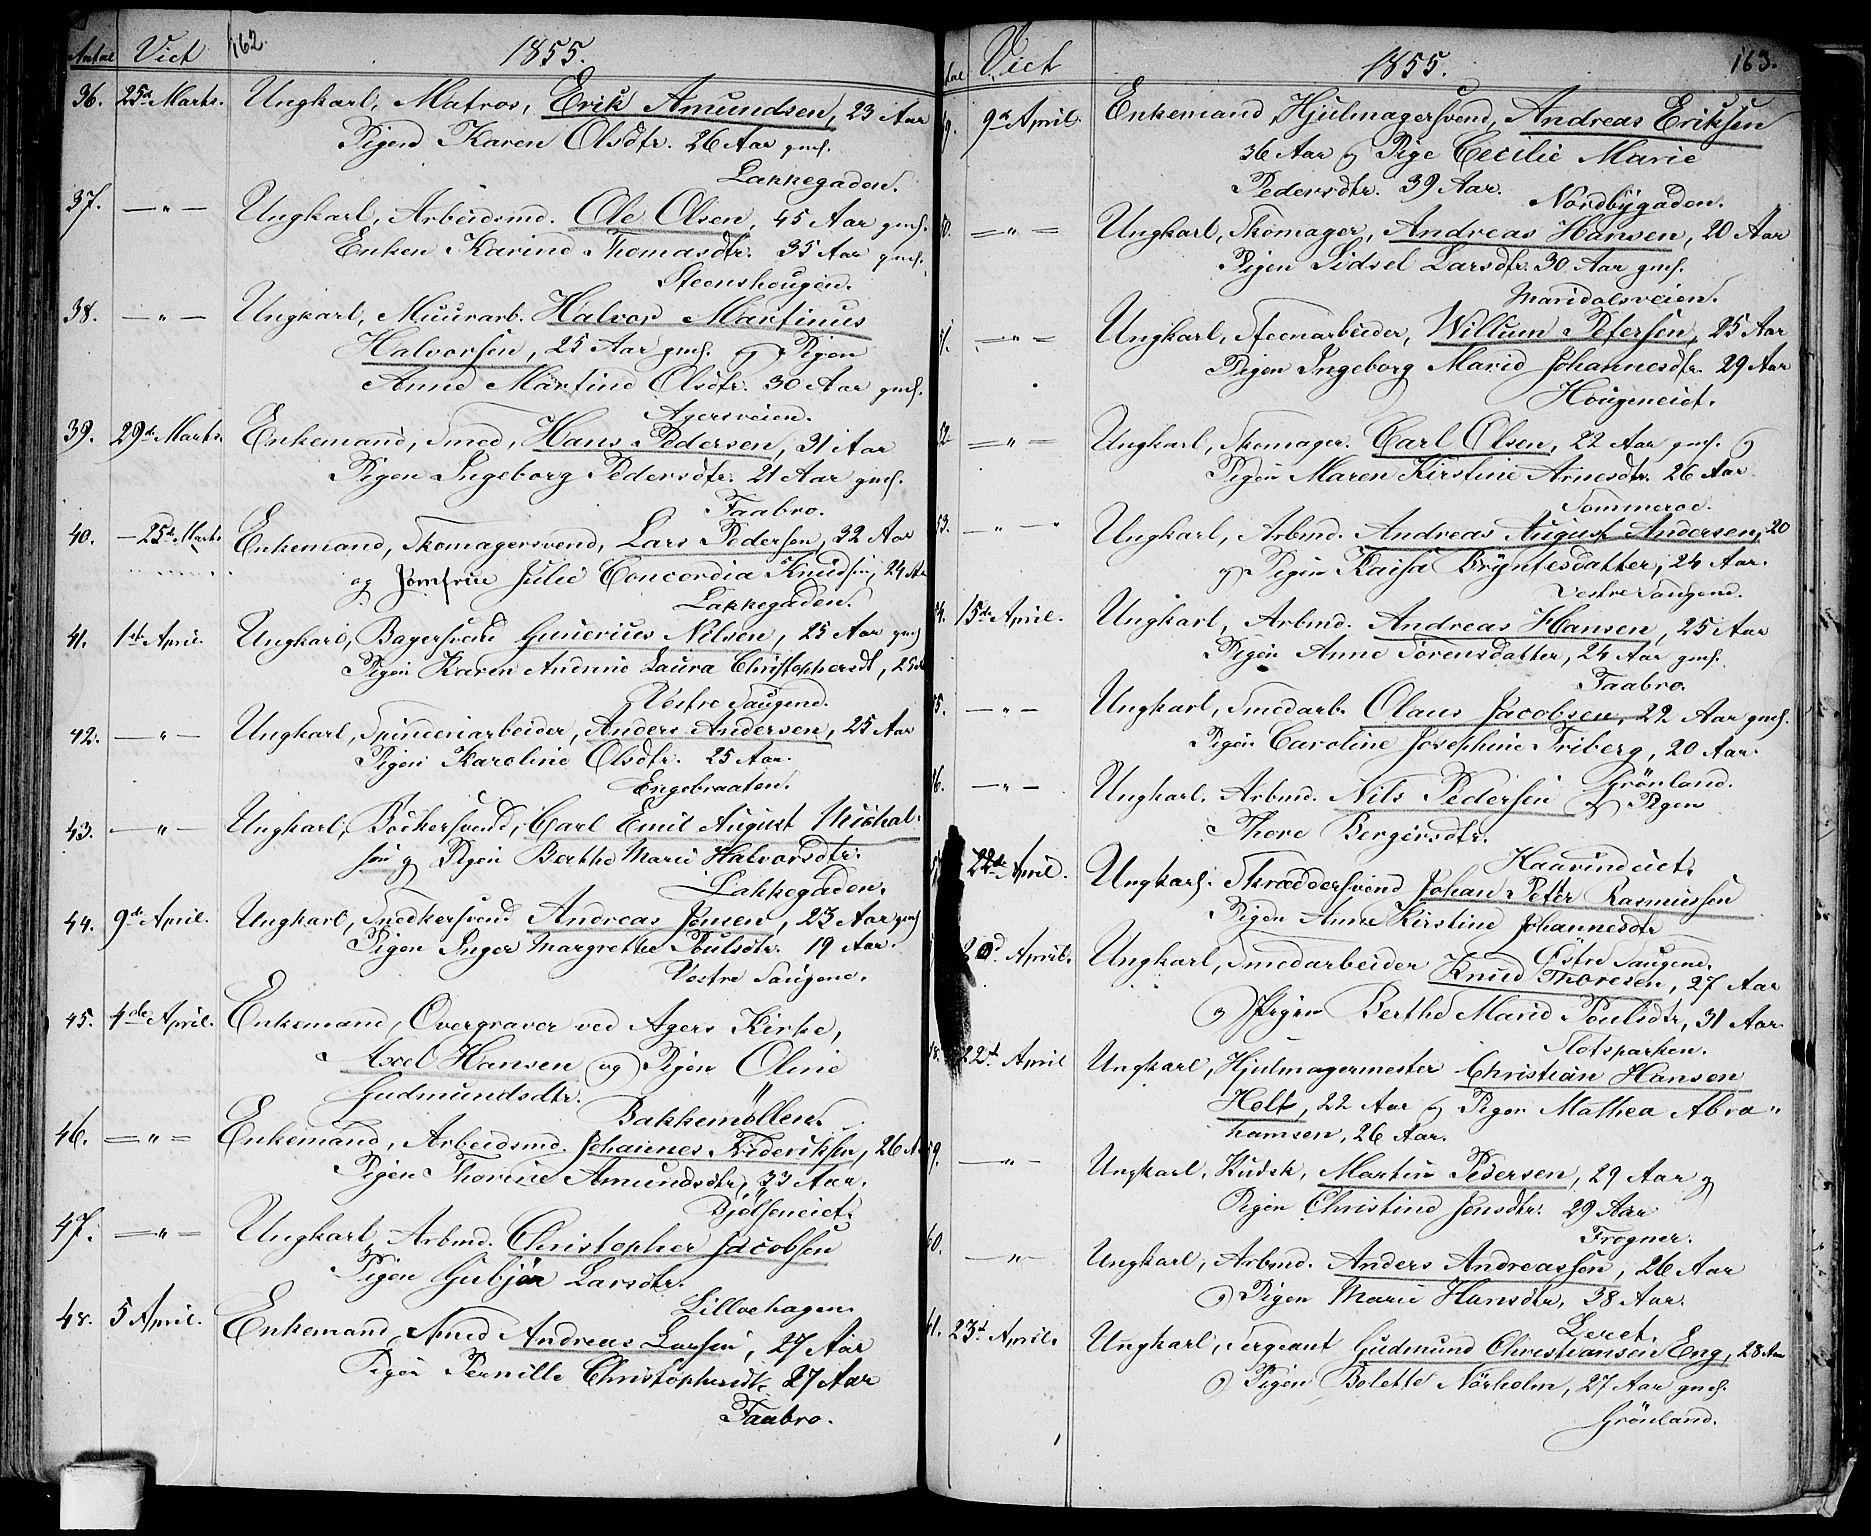 Antal Viet 162. 1855.
36. 25d Marts. Ungkarl, Matros, Erik Amundsen, 23 Aar
Pigen Karen Olsdtr. 26 Aar gmf.
Lakkegaden.
37. —„— Ungkarl, Arbeidsmd. Ole Olsen, 45 Aar gmf.
Enken Karine Thomasdtr. 35 Aar gmf.
Steenshougen.
38. —„— Ungkarl, Muurarb. Halvor Martinus
Halvorsen, 25 Aar gmf. og Pigen
Anne Martine Olsdtr. 30 Aar gmf.
Agersveien.
39. 29de Marts. Enkemand, Smed, Hans Pedersen, 31 Aar
Pigen Ingeborg Pedersdtr. 21 Aar gmf.
Faabro.
40. —25de Marts Enkemand, Skomagersvend, Lars Pedersen, 32 Aar
og Jomfrue Julie Concordia Knudsen, 24 Aar
Lakkegaden.
41. 1ste April. Ungkarl, Bagersvend Gunerius Nilsen, 25 Aar gmf
Pigen Karen Andrine Laura Christophersdt, 25
Vestre Saugene.
42. —„— Ungkarl, Spinderiarbeider, Anders Andersen, 25 Aar
Pigen Karoline Olsdtr. 25 Aar.
Engebraaten.
43. —„— Ungkarl, Bödkersvend, Carl Emil August Michal-
sen og Pigen Berthe Marie Halvorsdtr.
Lakkegaden.
44. 9de April. Ungkarl, Snedkersvend Andreas Jonsen, 23 Aar gmf
Pigen Inger Margrethe Poulsdtr. 19 Aar.
Vestre Saugene.
45. 4de April. Enkemand, Overgraver ved Agers Kirke,
Axel Hansen og Pigen Oline
Gudmundsdtr.
Bakkemöllen.
46. —„— Enkemand, Arbeidsmd. Johannes Frideriksen, 26
Pigen Thorine Amundsdtr, 33 Aar.
Bjölseneiet.
47. —„— Ungkarl, Arbmd. Christopher Jacobsen
Pigen Gubjör Larsdtr.
Lillohagen.
48. 5 April. Enkemand, Smed Andreas Larsen, 27 Aar
Pigen Pernille Christophersdtr 27 Aar
Faabro.
Viet 1855. 163.
9. 9de April. Enkemand, Hjulmagersvend, Andreas Eriksen
36 Aar og Pige Cecilie Marie
Pedersdtr. 39 Aar.
Nordbygaden.
0. —„— Ungkarl, Skomager, Andreas Hansen, 20 Aar
Pigen Sidsel Larsdtr. 30 Aar gmf.
Maridalsveien.
1. —„— Ungkarl, Steenarbeider, Willum Petersen, 25 Aar
Pigen Ingeborg Marie Johannesdtr. 29 Aar
Hougeneiet.
52 —„— Ungkarl, Skomager. Carl Olsen, 22 Aar gmf. og
Pigen Maren Kirstine Arnesdtr. 26 Aar.
Sommeroe.
53. —„— Ungkarl, Arbmd. Andreas August Andersen, 20
og Pigen Kaisa Bryntesdatter, 24 Aar.
Vestre Saugene.
4. 15de April. Ungkarl, Arbmd. Andreas Hansen, 25 Aar
Pigen Anne Sörensdatter, 24 Aar gmf.
Faabro.
55. —„— Ungkarl, Smedarb. Olaus Jacobsen, 22 Aar gmf.
Pigen Caroline Josephine Friberg, 20 Aar.
Grönland.
6. —„— Ungkarl. Arbmd. Nils Pedersen og Pigen
Thore Bergersdtr.
22de April. Ungkarl. Skræddersvend Johan Peter Rasmussen
Pigen Anne Kirstine Johannesdtr
Östre Saugene.
April. Ungkarl, Smedarbeider Knud Thoresen, 27 Aar
og Pigen Berthe Marie Poulsdtr, 31 Aar.
Slotsparken.
58. 22d April Ungkarl, Hjulmagermester Christian Hansen
Holt, 22 Aar og Pigen Mathea Abra„
hamsen, 26 Aar.
59. —„— Ungkarl, Kudsk, Martin Pedersen, 29 Aar og
Pigen Christine Jensdtr. 29 Aar
Frogner.
60. —„— Ungkarl, Arbmd. Anders Andreassen, 26 Aar
og Pigen Marie Hansdtr, 38 Aar.
Leret.
61. 23d April. Ungkarl, Sergeant Gudmund Christiansen Eng, 28 Aar
og Pigen Bolette Nörholm, 27 Aar, gmf.
Grönland.